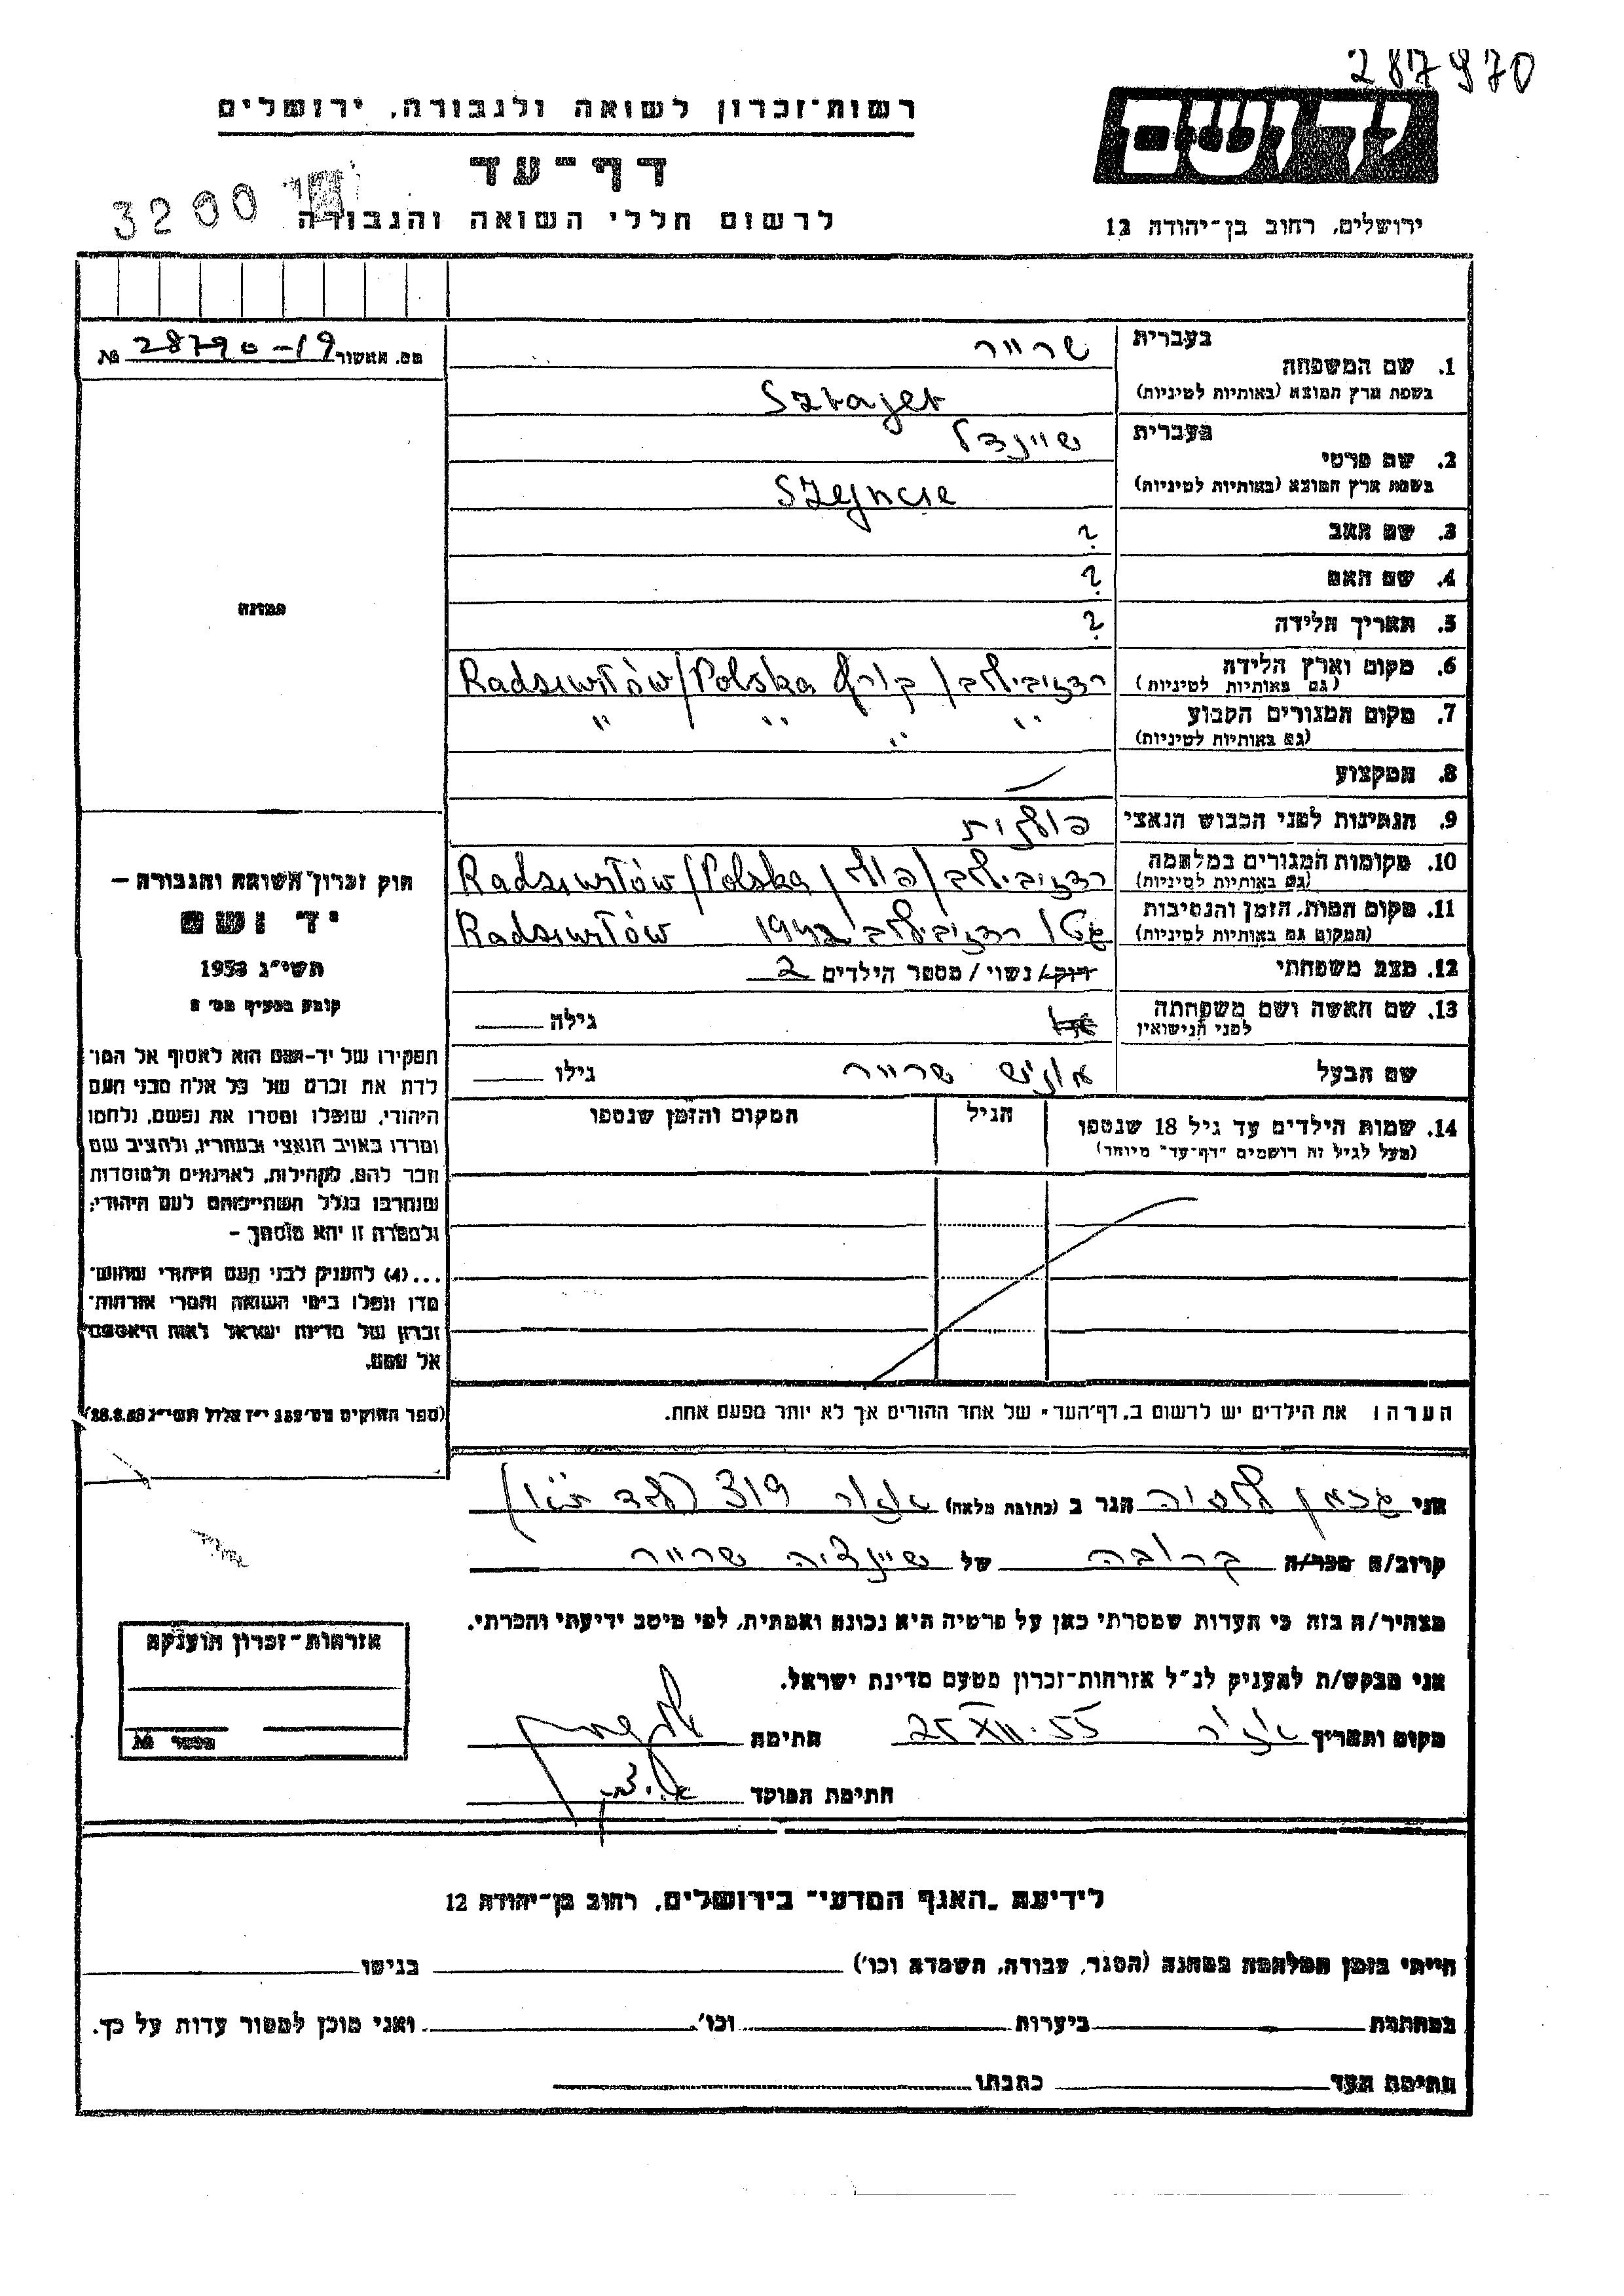 287970
יד ושם
רשות-זכרון לשואה ולגבורה, ירושלים
דף-עד
3200
לרשום חללי השואה והגבורה
ירושלים, רחוב בן-יהודה 12
מס. האשור 28790-19 №
תמונה
חוק זכרון השואה והגבורה –
יד ושם
תשי״ג 1953
קובע בסעיף מס׳ 2
תפקידו של יד-ושם הוא לאסוף אל המו־
לדת את זכרם של כל אלה מבני העם
היהודי, שנפלו ומסרו את נפשם, נלחמו
ומרדו באויב הנאצי ובעוזריו, ולהציב שם
וזכר להם, לקהילות, לארגונים ולמוסדות
שנחרבו בגלל השתייכותם לעם היהודי;
ולמטרה זו יהא מוסמך –
...(4) להעניק לבני העם היהודי שהוש־
מדו ונפלו בימי השואה והמרי אזרחות־
זכרון של מדינת ישראל לאות היאספם
אל עמם.
(ספר החוקים מס׳ 132 י״ז אלול תשי״ג 28.8.53)
1. שם המשפחה בעברית שרייר
בשפת ארץ המוצא (באותיות לטיניות) Szrajer
2. שם פרטי בעברית שיינדל
בשפת ארץ המוצא (באותיות לטיניות)
3. שם האב ?
4. שם האם ?
5. תאריך הלידה ?
6. מקום וארץ הלידה (גם באותיות לטיניות) רדזיבילוב / פולין Radziwiłłów/Polska
7. מקום המגורים הקבוע (גם באותיות לטיניות) " " " "
8. המקצוע —
9. הנתינות לפני הכבוש הנאצי פולנית
10. מקומות המגורים במלחמה (גם באותיות לטיניות) רדזיבילוב / פולין Radziwiłłów/Polska
11. מקום המות, הזמן והנסיבות (המקום גם באותיות לטיניות) גטו רדזיבילוב 1942 Radziwiłłów
12. מצב משפחתי רווק/ נשוי / מספר הילדים 2
13. שם האשה ושם משפחתה לפני הנישואין גילה
שם הבעל שרייר גילו
14. שמות הילדים עד גיל 18 שנספו (מעל לגיל זה רושמים "דף-עד" מיוחד) הגיל המקום והזמן שנספו
הערה: את הילדים יש לרשום ב„דף-העד" של אחד ההורים אך לא יותר מפעם אחת.
אני הגר ב (כתובת מלאה) 319
קרוב/ה מכר/ה קרובה של שרייר
מצהיר/ה בזה כי העדות שמסרתי כאן על פרטיה היא נכונה ואמתית, לפי מיטב ידיעתי והכרתי.
אני מבקש/ת להעניק לנ״ל אזרחות-זכרון מטעם מדינת ישראל.
מקום ותאריך 25 XII.55 חתימה
חתימת הפוקד
אזרחות-זכרון הוענקה
מספר №
לידיעת „האגף המדעי" בירושלים, רחוב בן-יהודה 12
הייתי בזמן המלחמה במחנה (הסגר, עבודה, השמדה וכו׳) בגיטו
במחתרת ביערות וכו׳ ואני מוכן למסור עדות על כך.
חתימת העד כתבתו